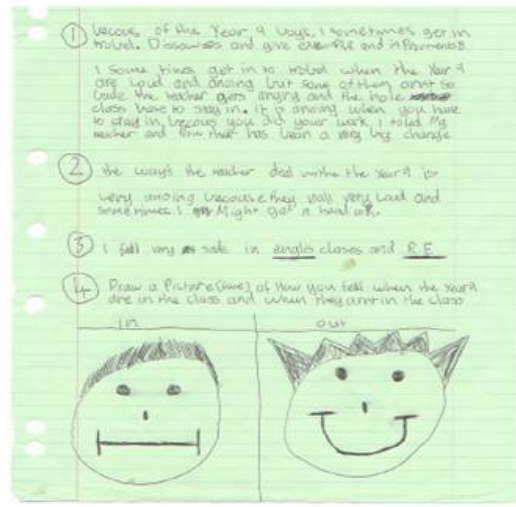 1 becous of the Year 9 boys, I sometimes get in
trobel. Disscusss and give and in Payments
I some times get in to trobel when the Year 9
are loud and anoing but some of them arnt so
bade the teacher gets angry and the hole
class have to stay in. it is anoing when you have
to stay in, becous you did your work I toled My
teacher and now ther has bean a very big change
2 the ways the teacher deal withe the year 9 is
very anoing becouse they very Loud and
sometimes I Might get a head ack.
3 I fell very safe in englis clases and R.E
4 Draw a Picture (face) of How you fell when the Year 9
are in the class and when they arnt in the class
in out